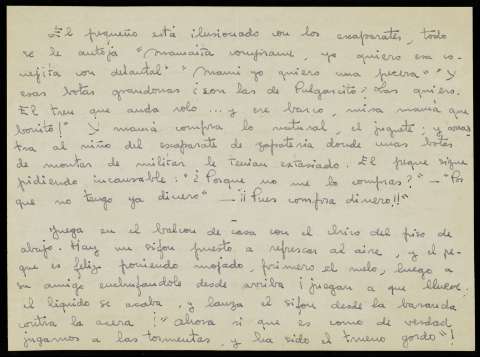 El pequeño está ilusionado con los escaparates, todo
se le antoja "mamaita comprame, yo quiero esa co-
nejita con delantal" "Mami yo quiero una pecera" "Y
esas botas grandonas ¿son las de Pulgarcito? Las quiero.
El tren que anda solo... y ese barco, mira mamá que
bonito!" Y mamá compra lo natural, el juguete; y arras-
tra al niño del escaparate de zapateria donde unas botas
de montar de militar le tenian extasiado. El peque sigue
pidiendo incansable: "¿Porque no me lo compras?" — "Por
que no tengo ya dinero" — "¡¡Pues compra dinero!!"
Juega en el balcon de casa con el chico del piso de
abajo. Hay un sifon puesto a refrescar al aire, y el pe-
que es feliz poniendo mojado, primero el suelo, luego a
su amigo enchufandole desde arriba ¡juegan a que llueve;
el liquido se acaba, y lanza el sifon desde la baranda
contra la acera! "ahora si que es como de verdad
jugamos a las tormentas, y ha sido el trueno gordo"!